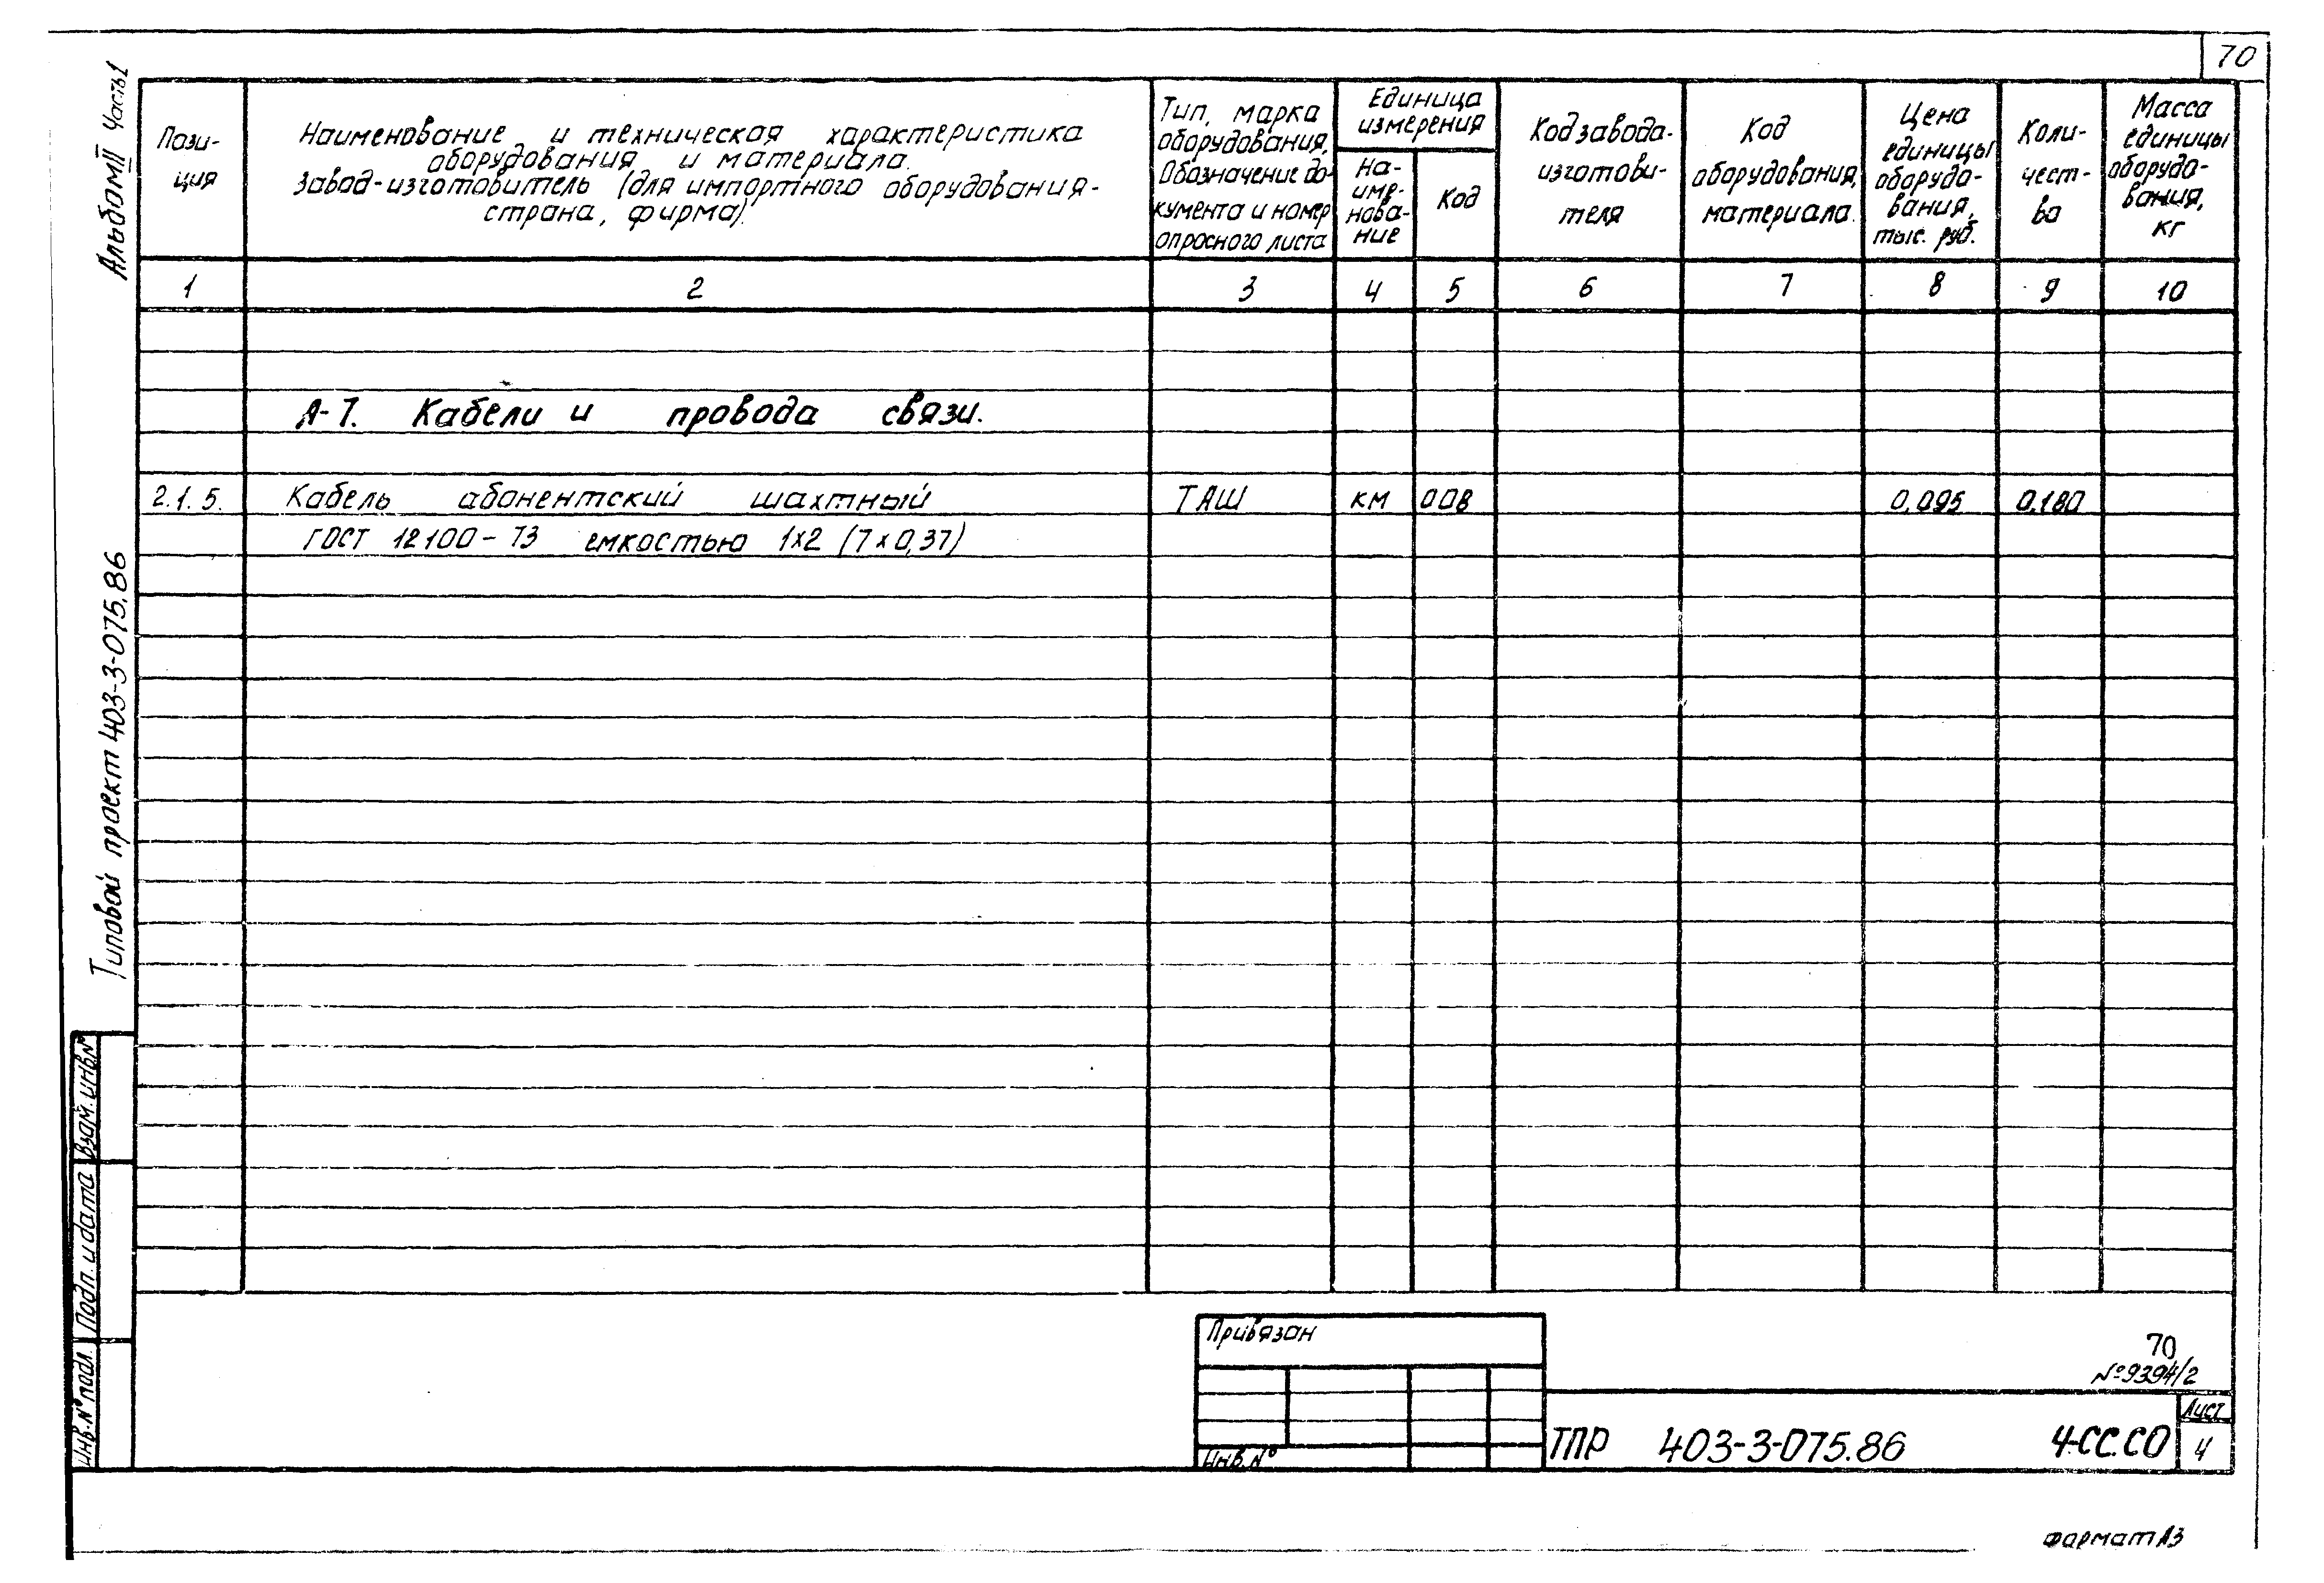 70
Альбом II Часть 1
Типовой проект 403-3-075.86
Пози-
ция
Наименование и техническая характеристика
оборудования и материала.
завод-изготовитель (для импортного оборудования-
страна, фирма).
Тип, марка
оборудования.
Обозначение до-
кумента и номер
опросного листа
Единица
измерения
На-
име-
нова-
ние
Код
Код завода-
изготови-
теля
Код
оборудования,
материала.
Цена
единицы
оборудо-
вания,
тыс. руб.
Коли-
чест-
во
Масса
единицы
оборудо-
вания,
кг
1 2 3 4 5 6 7 8 9 10
А-7. Кабели и провода связи.
2.1.5. Кабель абонентский шахтный ТАШ км 008 0,095 0,180
ГОСТ 12100-73 емкостью 1х2 (7х0,37)
Взам. инв.№
Подп. и дата
Инв.№ подл.
Привязан
Инв.№
70
№9394/2
ТПР 403-3-075.86 4-СС.СО
Лист
4
Формат А3